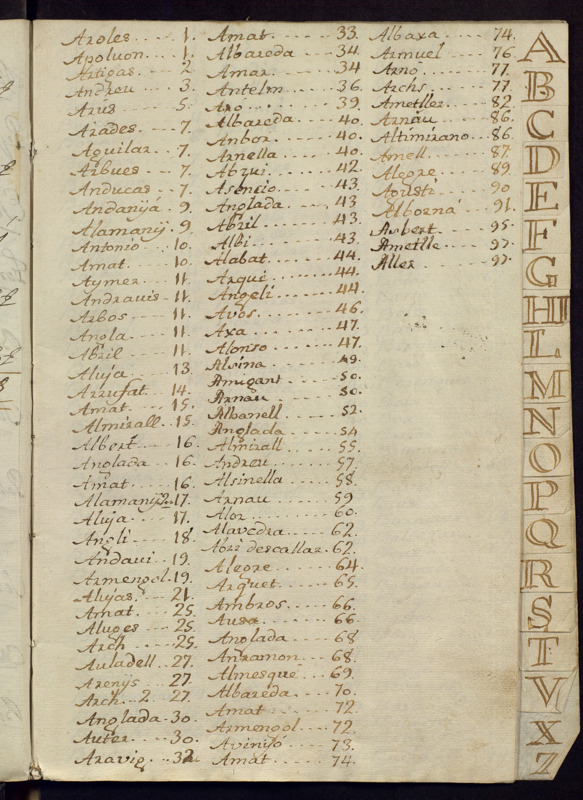 Aroles.... 1.
Apoluon... 1.
Artigas... 2
Andreu... 3.
Arús.... 5.
Arades... 7.
Aguilar... 7.
Arbues... 7.
Anducas... 7.
Andaniá. 9.
Alamany. 9.
Antonio.. 10.
Amat.... 10.
Aymer... 11.
Andrauis-- 11.
Arbos... 11.
Angla... 11.
Abril.... 11.
Aluja... 13.
Arrufat... 14.
Amat... 15.
Almirall.. 15.
Albert... 16.
Anglada.. 16.
Amat... 16.
Alamany 2..17.
Aluja... 17.
Angli... 18.
Andaui.. 19.
Armengol.19.
Alujas... 21.
Amat... 25.
Aluges... 25.
Arch... 25.
Auladell.. 27.
Arenys... 27.
Arch.. 2. 27.
Anglada. 30.
Auter... 30.
Aravig... 32
Amat.... 33.
Albareda.. 34
Amar.... 34
Antelm.... 36.
Aro..... 39.
Albareda... 40.
Anbor.... 40.
Arnella... 40.
Abzui.... 42.
Asencio... 43.
Anglada... 43
Abril.... 43.
Albi.... 43.
Alabat... 44.
Arqué... 44.
Angeli... 44.
Avos.... 46.
Axa.... 47.
Alonso... 47.
Alsina... 49.
Amigant... 50.
Arnau... 50.
Albanell... 52.
Anglada... 54
Almirall... 55.
Andreu.... 57.
Alsinella... 58.
Arnau.... 59
Alor..... 60.
Alavedra... 62.
descallar. 62.
Alegre.... 64
Arquet... 65.
Ambros... 66.
Ausa.... 66
Anglada... 68
Anramon... 68.
Almesqué.. 69.
Albareda... 70.
Amat.... 72
Armengol... 72.
Avinyó.... 73.
Amat.... 74.
Albaxa.... 74.
Armuel... 76.
Arno.... 77.
Archs.... 77.
Ametller... 82.
Arnau... 86.
Altimirano.. 86.
Amell.... 87.
Alegre... 89
Agusti... 90
Albornà.. 91.
Asbert... 95.
Ametlle.. 97.
Aller.... 97.
A
B
C
D
E
F
G
H I
L
M
N
O
P
Q
R
S
T
V
X
Z